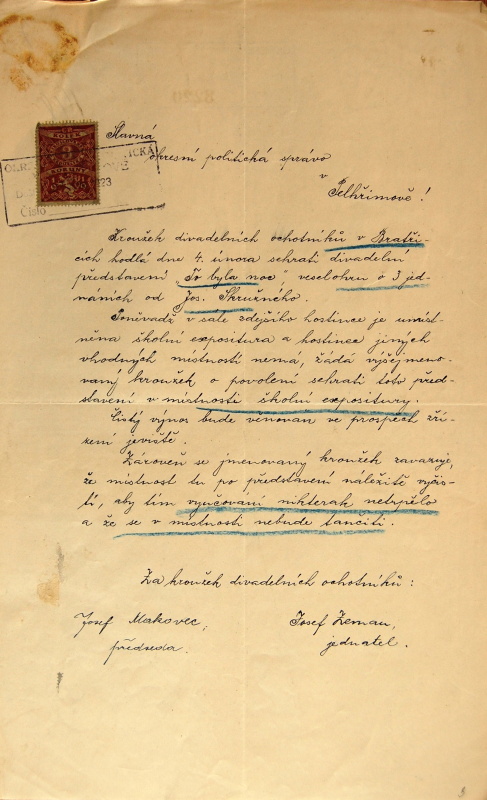 Slavná
okresní politická správo
v
Pelhřimově!
KOLEK
KORUNY
Číslo
Kroužek divadelních ochotníků v Bratři-
cích hodlá dne 4. února sehrati divadelní
představení „To byla noc" veselohru o 3 jed-
náních od Jos. Skružného.
Poněvadž v sále zdejšího hostince je umíst-
něna školní expositura a hostinec jiných
vhodných místností nemá, žádá výšejmeno-
vaný kroužek o povolení sehrati toto před-
stavení v místnosti školní expositury.
Čistý výnos bude věnován ve prospěch zří-
zení jeviště.
Zároveň se jmenovaný kroužek zavazuje,
že místnost tu po představení náležitě vyčis-
tí, aby tím vyučování nikterak netrpělo
a že se v místnosti nebude tančiti.
Za kroužek divadelních ochotníků:
Josef Makovec,
předseda.
Josef Zeman,
jednatel.